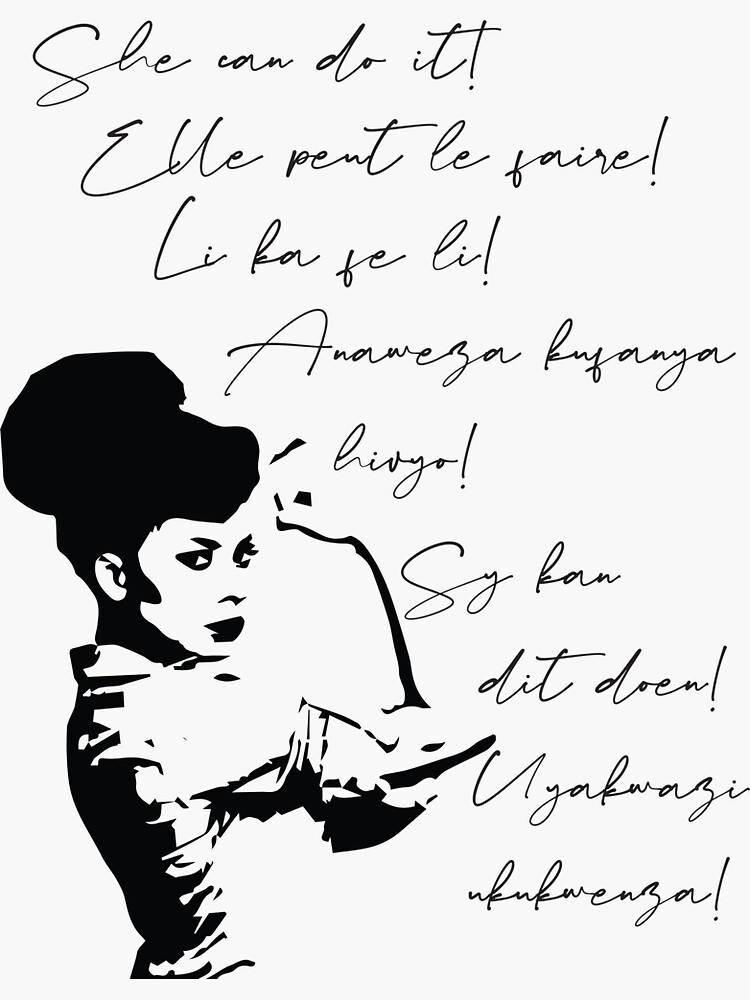 She can do it!
Elle peut le faire!
Li ka fe li!
Anaweza kufanya
hivyo!
Sy kan
dit doen!
Uyakwazi
ukukwenza!